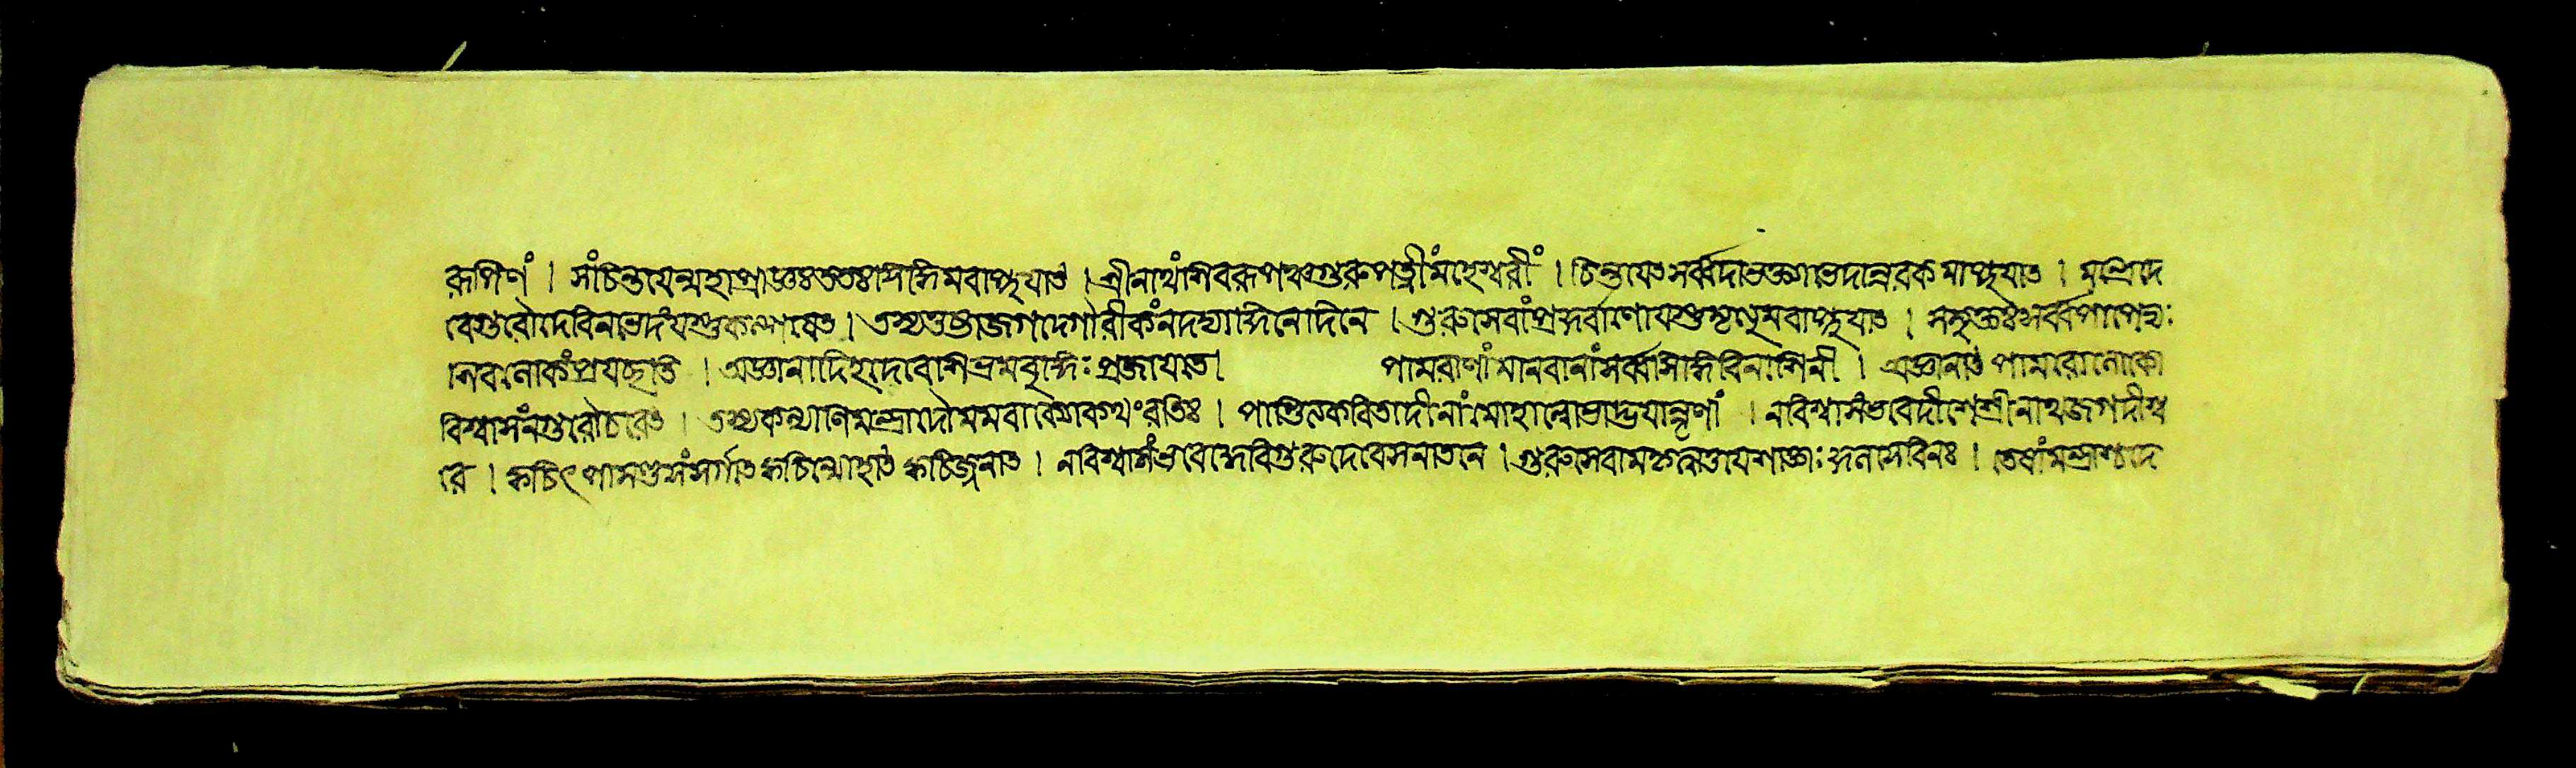 রূপিণং । সংচিন্তয়েন্মহাপ্রাজ্ঞঃ ততঃ সিদ্ধিমবাপ্নুয়াৎ । শ্রীনাথং শিবরূপঞ্চ গুরুপত্নীং মহেশ্বরীং । চিন্তয়েৎ সর্ব্বদা ভক্ত্যা ভেদান্নরকমাপ্নুয়াৎ । মন্ত্রে দে
বে গুরৌ দেবি ন ভেদং যস্তু কল্পয়েৎ । তস্য তুষ্টা জগদ্গৌরী কিং ন দদ্যাদ্দিনে দিনে । গুরুসেবাং প্রকুর্ব্বাণো যস্তু মৃত্যুমবাপ্নুয়াৎ । স মুক্তঃ সর্ব্বপাপেভ্যঃ
শিবলোকং প্রয়চ্ছতি । অজ্ঞানাদিহ দেবেশি ভ্রমবুদ্ধিঃ প্রজায়তে । পামরাণাং মানবানাং সর্ব্বসিদ্ধিবিনাশিনী । অজ্ঞানাৎ পামরো লোকো
বিশ্বাসং ন গুরৌ চরেৎ । তস্য কল্যাণি মন্ত্রাদৌ মম বাক্যে কথং রতিঃ । পণ্ডিত কবিতাদীনাং মোহাল্লোভাদ্ভয়ান্নৃণাং । ন বিশ্বাসং ভবেদীশে শ্রীনাথে জগদীশ্ব
রে । ক্বচিৎ পাষণ্ডসংসর্গাৎ ক্বচিন্মোহাৎ ক্বচিজ্জনাৎ । ন বিশ্বাসং ভবেদ্দেবি গুরুদেবে সনাতনে । গুরুসেবা মন্ত্র দেবি তেষাং মন্ত্রাশ্চ দে